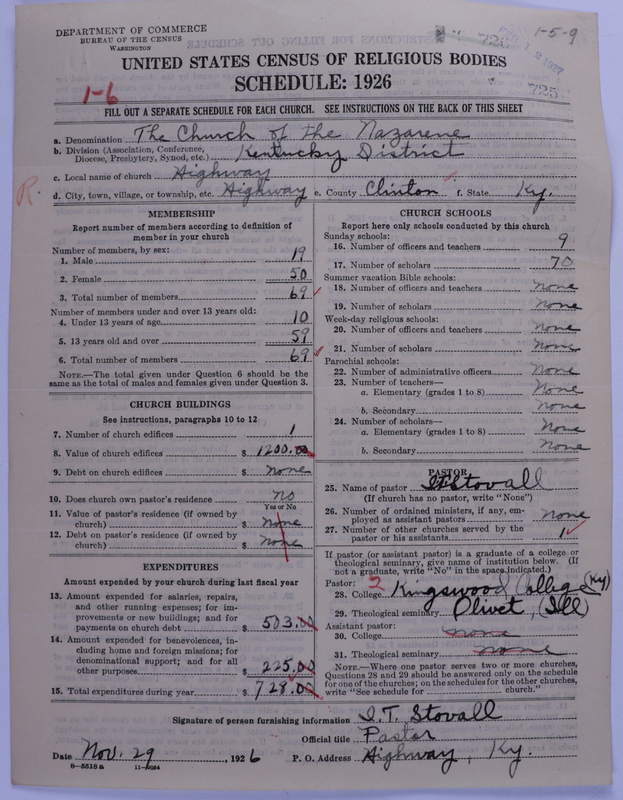 DEPARTMENT OF COMMERCE
BUREAU OF THE CENSUS
WASHINGTON
1-5-9
725
UNITED STATES CENSUS OF RELIGIOUS BODIES
SCHEDULE: 1926
1-6
725
FILL OUT A SEPARATE SCHEDULE FOR EACH CHURCH. SEE INSTRUCTIONS ON THE BACK OF THIS SHEET
a. Denomination The Church of the Nazarene
b. Division (Association, Conference, Diocese, Presbytery, Synod, etc.) Kentucky District
c. Local name of church Highway
R.
d. City, town, village, or township, etc. Highway e. County Clinton f. State Ky.
MEMBERSHIP
Report number of members according to definition of
member in your church
Number of members, by sex:
1. Male 19
2. Female 50
3. Total number of members 69
Number of members under and over 13 years old:
4. Under 13 years of age 10
5. 13 years old and over 59
6. Total number of members 69
NOTE.—The total given under Question 6 should be
same as the total of males and females given under Question 3.
CHURCH BUILDINGS
See instructions, paragraphs 10 to 12
7. Number of church edifices 1
8. Value of church edifices $ 1200.00
9. Debt on church edifices $ none
10. Does church own pastor's residence no
Yes or No
11. Value of pastor's residence (if owned by
church) $ none
12. Debt on pastor's residence (if owned by
church) $ none
EXPENDITURES
Amount expended by your church during last fiscal year
13. Amount expended for salaries, repairs,
and other running expenses; for im-
provements or new buildings; and for
payments on church debt $ 503.00
14. Amount expended for benevolences, in-
cluding home and foreign missions; for
denominational support; and for all
other purposes $ 225.00
15. Total expenditures during year $ 728.00
CHURCH SCHOOLS
Report here only schools conducted by this church
Sunday schools:
16. Number of officers and teachers 9
17. Number of scholars 70
Summer vacation Bible schools:
18. Number of officers and teachers none
19. Number of scholars none
Week-day religious schools:
20. Number of officers and teachers none
21. Number of scholars none
Parochial schools:
22. Number of administrative officers none
23. Number of teachers—
a. Elementary (grades 1 to 8) none
b. Secondary none
24. Number of scholars—
a. Elementary (grades 1 to 8) none
b. Secondary none
PASTOR
25. Name of pastor I.T. Stovall
(If church has no pastor, write "None")
26. Number of ordained ministers, if any, em-
ployed as assistant pastors none
27. Number of other churches served by the
pastor or his assistants 1
If pastor (or assistant pastor) is a graduate of a college or
theological seminary, give name of institution below. (If
not a graduate, write "No" in the space indicated.)
Pastor: 2
28. College Kingswood College (Ky)
29. Theological seminary Olivet, (Ill)
Assistant pastor:
30. College none
31. Theological seminary none
NOTE.—Where one pastor serves two or more churches,
Questions 28 and 29 should be answered only on the schedule
for one of the churches; on the schedules for the other churches,
write "See schedule for church."
Signature of person furnishing information I.T. Stovall
Official title Pastor
Date Nov. 29, 1926 P. O. Address Highway, Ky.
8-5518 a